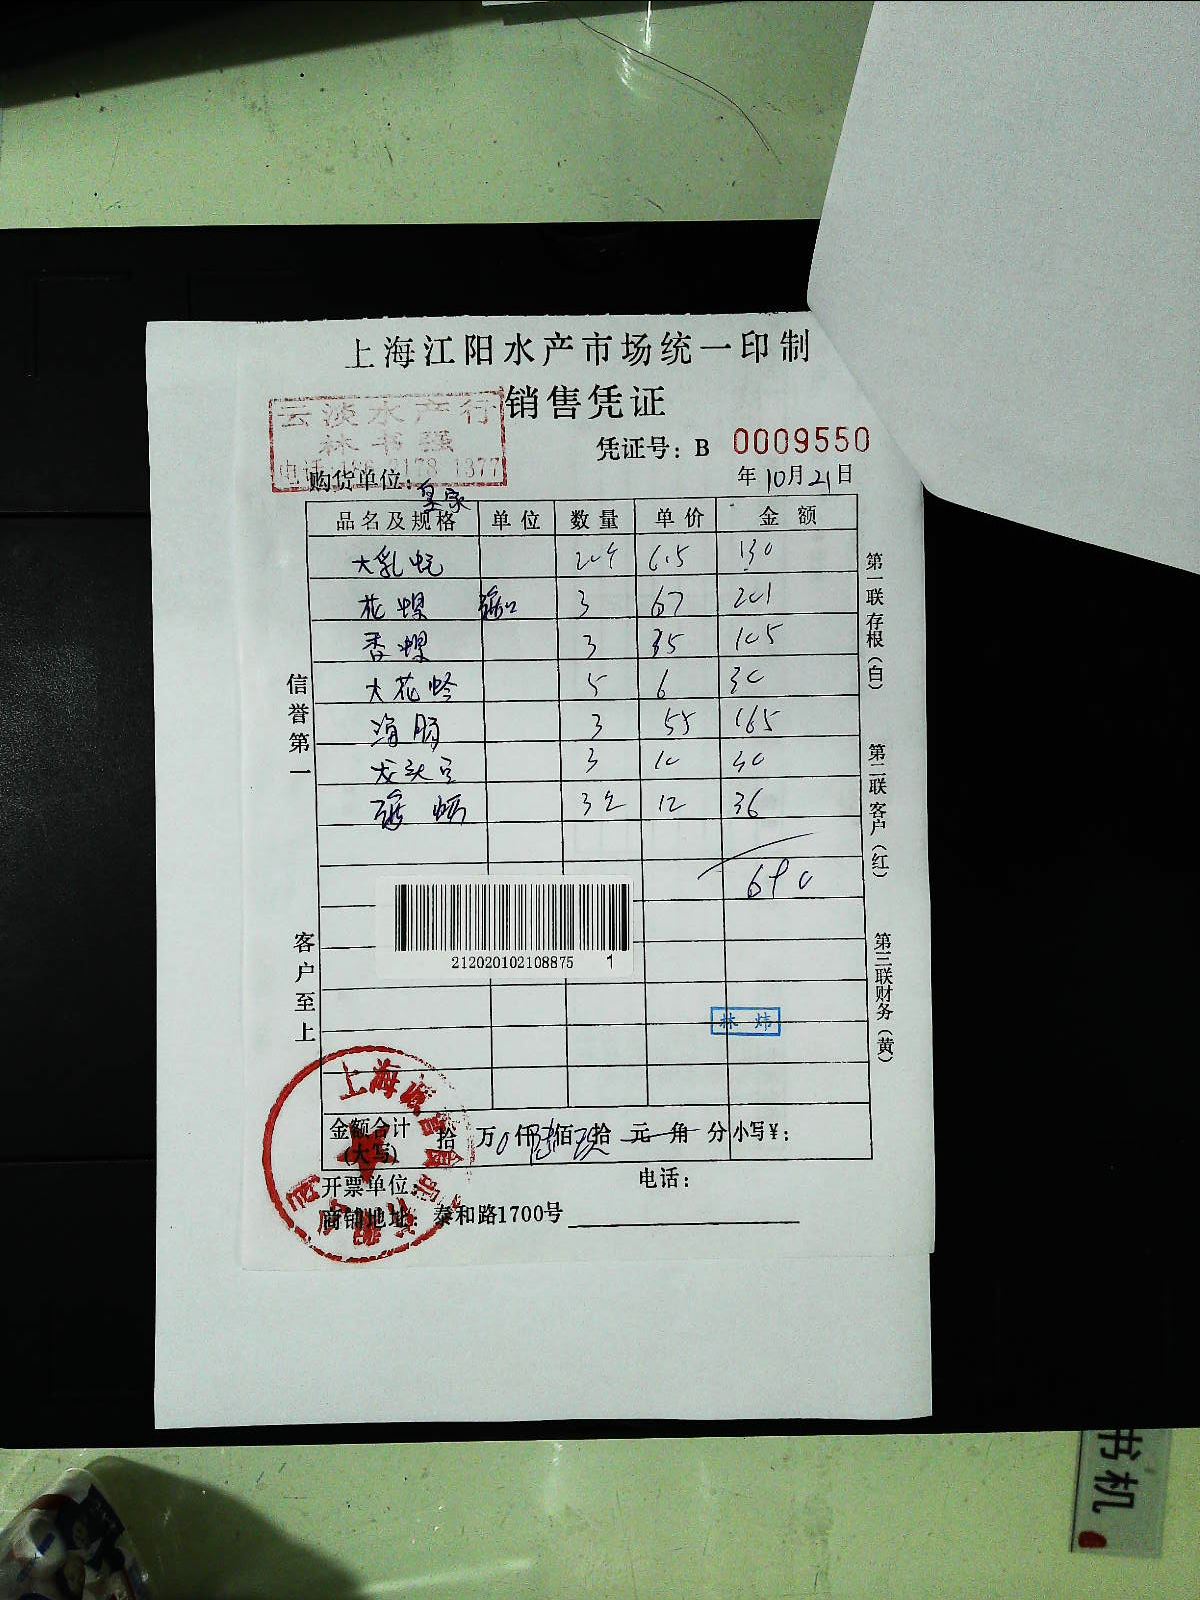 上海江阳水产市场统一印制
销售凭证
云淡水产行
林书强
凭证号：B 0009550
购货单位：皇家
年10月21日
品名及规格 单位 数量 单价 金额
大乳蚝 20个 6.5 130
花螺 3 67 201
香螺 3 35 105
大花蛤 5 6 30
海肠 3 55 165
龙头豆 3 10 30
36 12
690
212020102108875 1
林炜
金额合计 拾 万0仟陆佰玖拾 元 角 分 小写¥：
(大写)
开票单位： 电话：
商铺地址：泰和路1700号
信誉第一
客户至上
第一联存根(白)
第二联客户(红)
第三联财务(黄)
上海
书机